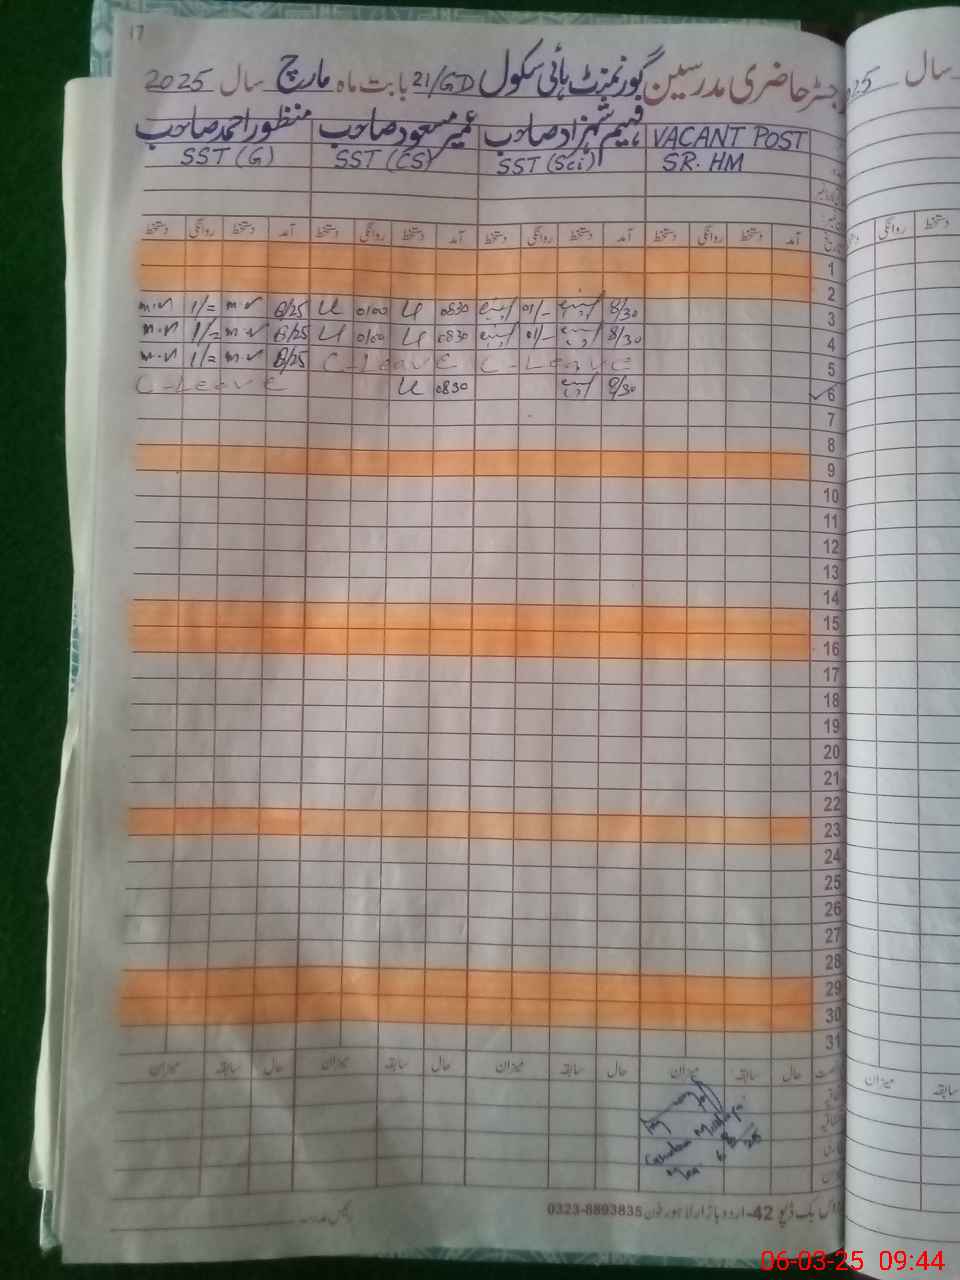 17
رجسٹر حاضری مدرسین گورنمنٹ ہائی سکول 21/GD بابت ماہ مارچ سال 2025
سال 25
VACANT POST فہیم شہزاد صاحب عمیر مسعود صاحب منظور احمد صاحب
SR. HM SST (Sci) SST (CS) SST (G)
آمد دستخط روانگی دستخط آمد دستخط روانگی دستخط آمد دستخط روانگی دستخط آمد دستخط روانگی دستخط
دستخط روانگی
1
2
3 8/30 01/- 0830 U 0100 U 8/25 m.n 1/= m.n
4 8/30 01/- 0830 U 0100 U 8/25 m.n 1/= m.n
5 C-Leave C-Leave 8/25 m.n 1/= m.n
6 8/30 0830 U C-Leave
7
8
9
10
11
12
13
14
15
16
17
18
19
20
21
22
23
24
25
26
27
28
29
30
31
حال سابقہ میزان حال سابقہ میزان حال سابقہ میزان حال سابقہ میزان
میزان سابقہ
بک ڈپو 42-اردو بازار لاہور فون 0323-8893835
06-03-25 09:44